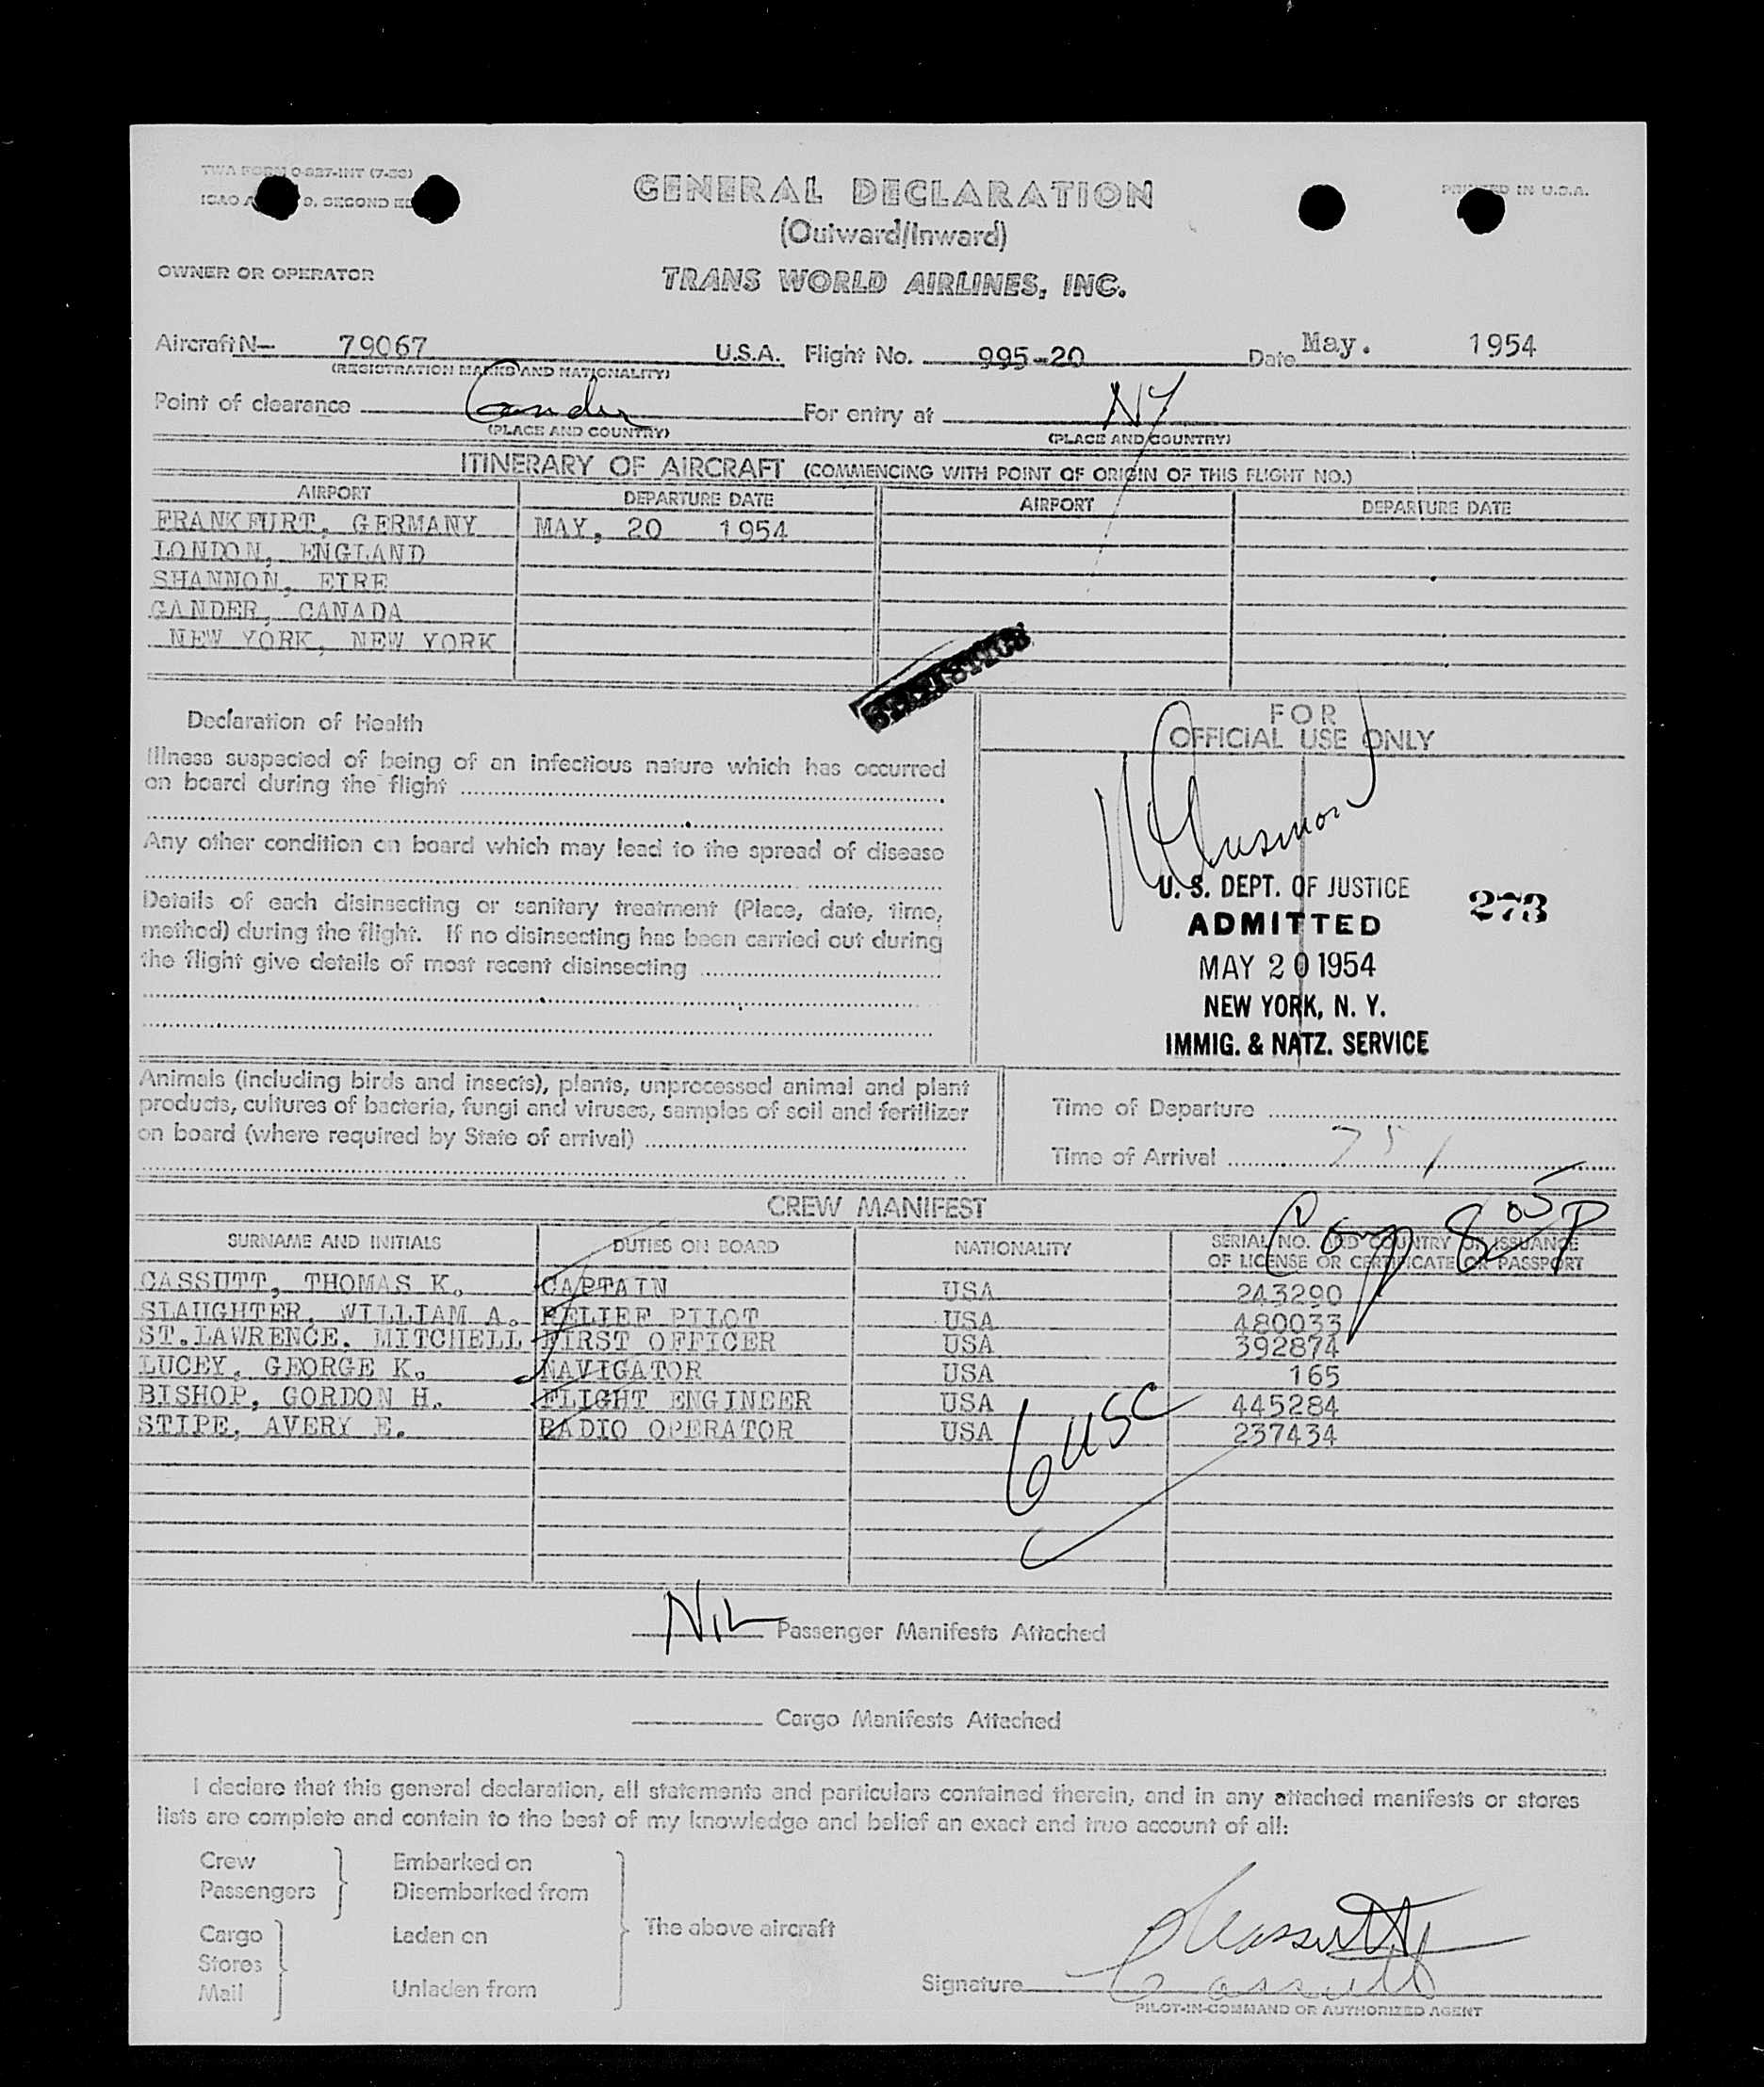 TWA FORM O-227-INT (7-50)
ICAO A D, SECOND ED
PRINTED IN U.S.A.
GENERAL DECLARATION
(Outward/Inward)
OWNER OR OPERATOR TRANS WORLD AIRLINES, INC.
Aircraft N- 79067 U.S.A. Flight No. 995-20 Date May. 1954
(REGISTRATION MARKS AND NATIONALITY)
Point of clearance Gander For entry at NY
(PLACE AND COUNTRY) (PLACE AND COUNTRY)
ITINERARY OF AIRCRAFT (COMMENCING WITH POINT OF ORIGIN OF THIS FLIGHT NO.)
AIRPORT DEPARTURE DATE AIRPORT DEPARTURE DATE
FRANKFURT, GERMANY MAY, 20 1954
LONDON, ENGLAND
SHANNON, EIRE
GANDER, CANADA
NEW YORK, NEW YORK
STATISTICS
Declaration of Health
Illness suspected of being of an infectious nature which has occurred
on board during the flight
Any other condition on board which may lead to the spread of disease
Details of each disinsecting or sanitary treatment (Place, date, time,
method) during the flight. If no disinsecting has been carried out during
the flight give details of most recent disinsecting
FOR
OFFICIAL USE ONLY
U. S. DEPT. OF JUSTICE
ADMITTED
273
MAY 20 1954
NEW YORK, N. Y.
IMMIG. & NATZ. SERVICE
Animals (including birds and insects), plants, unprocessed animal and plant
products, cultures of bacteria, fungi and viruses, samples of soil and fertilizer
on board (where required by State of arrival)
Time of Departure
Time of Arrival 751
CREW MANIFEST
Comp 805P
SURNAME AND INITIALS DUTIES ON BOARD NATIONALITY SERIAL NO. AND COUNTRY OF ISSUANCE
OF LICENSE OR CERTIFICATE OR PASSPORT
CASSUTT, THOMAS K. CAPTAIN USA 243290
SLAUGHTER, WILLIAM A. RELIEF PILOT USA 480033
ST.LAWRENCE. MITCHELL FIRST OFFICER USA 392874
LUCEY, GEORGE K. NAVIGATOR USA 165
BISHOP, GORDON H. FLIGHT ENGINEER USA 445284
STIPE, AVERY E. RADIO OPERATOR USA 237434
6 USC
NIL Passenger Manifests Attached
Cargo Manifests Attached
I declare that this general declaration, all statements and particulars contained therein, and in any attached manifests or stores
lists are complete and contain to the best of my knowledge and belief an exact and true account of all:
Crew Embarked on
Passengers Disembarked from
Cargo Laden on The above aircraft
Stores
Mail Unladen from
Signature Cassutt
PILOT-IN-COMMAND OR AUTHORIZED AGENT